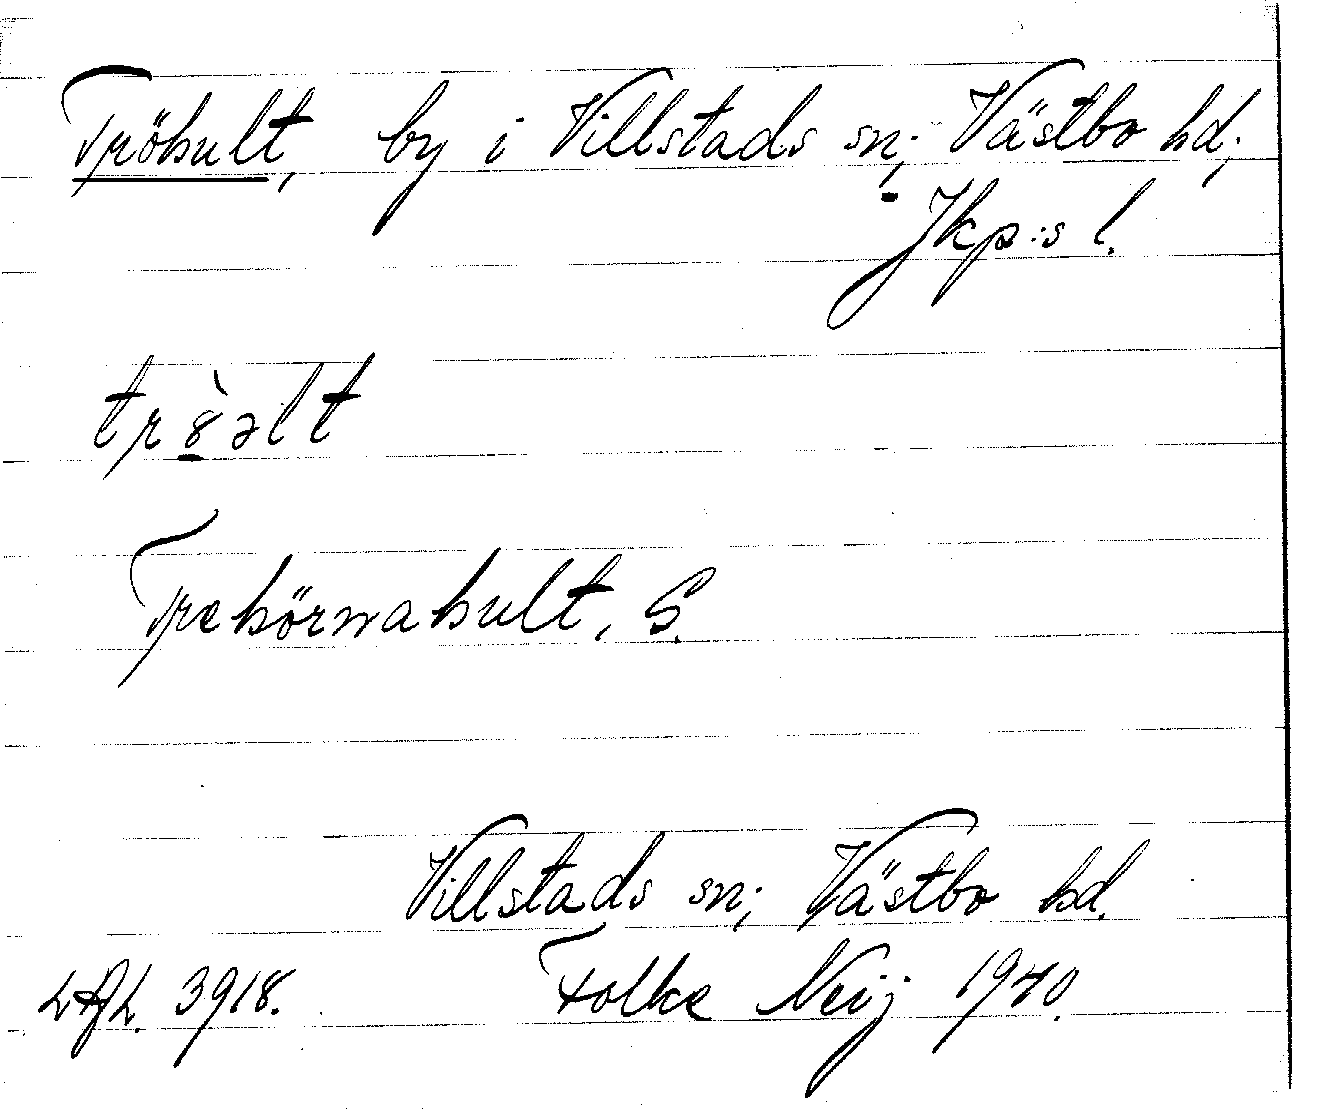 Tröhult, by i Villstads sn; Västbo hd;
Jkp:s l.
tr8̱̀əlt
Trehörnahult, S.
Villstads sn; Västbo hd.
3918. Folke Neij 1940.